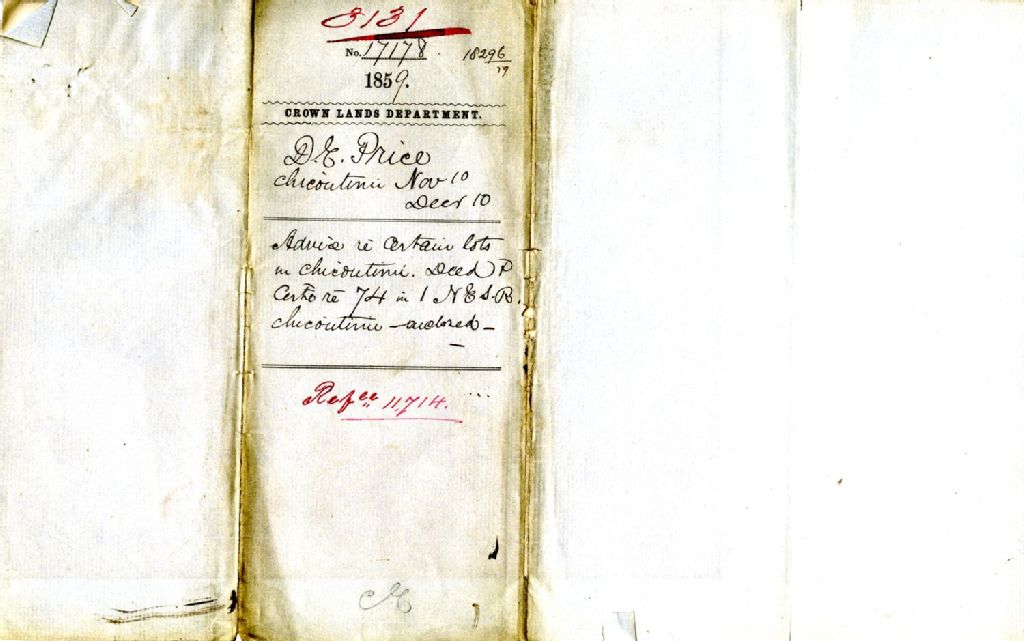 3131
No. 17178. 18296/59
1859.
CROWN LANDS DEPARTMENT.
D E. Price
Chicoutimi Nov 10
Decr 10
Advice re Certain lots
in Chicoutimi. Deed P
re 74 in 1 N E S. R.
Chicoutimi
Refce 11,714.